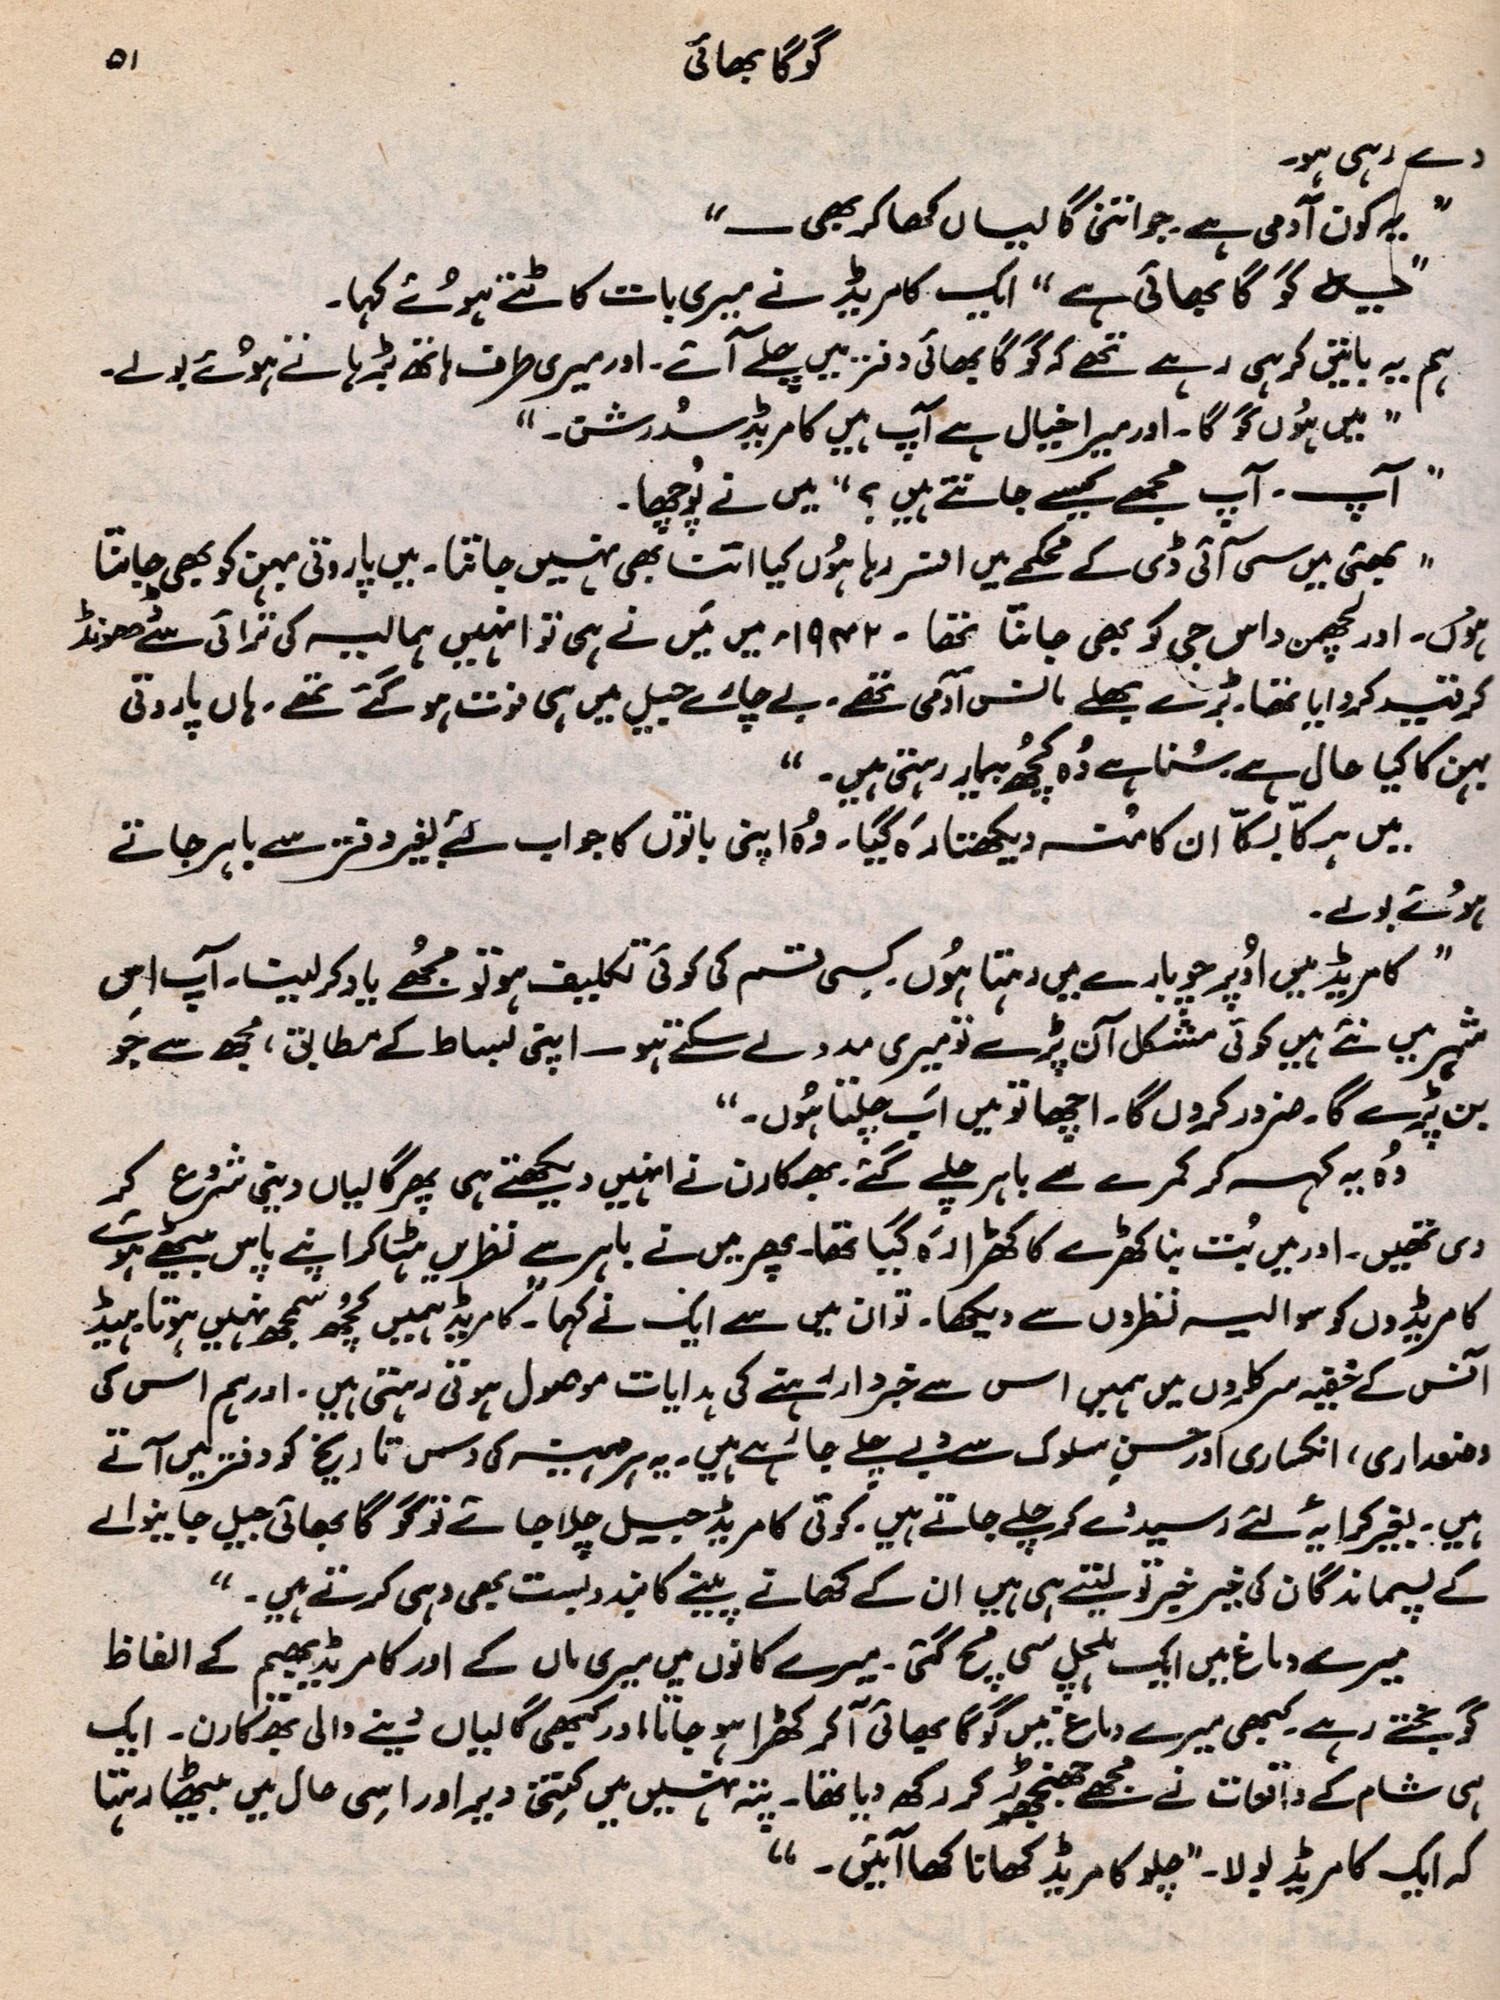 گوگا بھائی
۵۱
دے رہی ہو۔
” یہ کون آدمی ہے۔ جو اتنی گالیاں کھا کر بھی ــــ “
” گوگا بھائی ہے “ ایک کامریڈ نے میری بات کاٹتے ہوئے کہا۔
ہم یہ باتیں کر ہی رہے تھے کہ گوگا بھائی دفتر میں چلے آئے۔ اور میری طرف ہاتھ بڑہاتے ہوئے بولے۔
” میں ہُوں گوگا۔ اور میرا خیال ہے آپ ہیں کامریڈ سُدرشن۔ “
” آپ ۔ آپ مجھے کیسے جانتے ہیں ؟ “ میں نے پُوچھا۔
” بھئی میں سی آئی ڈی کے محکمے میں افسر رہا ہُوں کیا اتنا بھی نہیں جانتا۔ میں پاروتی بہن کو بھی جانتا
ہوں۔ اور لچھمن داس جی کو بھی جانتا تھا ۔ ۱۹۴۲ء میں مَیں نے ہی تو انہیں ہمالیہ کی ترائی سے ڈھونڈ
کر قید کروایا تھا۔ بڑے بھلے مانس آدمی تھے۔ بے چارے جیل میں ہی فوت ہو گئے تھے۔ ہاں پاروتی
بہن کا کیا حال ہے۔ سُنا ہے وُہ کچُھ بیمار رہتی ہیں۔ “
میں ہرکاّ بکاّ ان کا مُنہ دیکھتا رَہ گیا۔ وُہ اپنی باتوں کا جواب لئے بغیر دفتر سے باہر جاتے
ہوئے بولے۔
” کامریڈ میں اوُپر چوبارے میں رہتا ہُوں۔ کِسی قسم کی کوئی تکلیف ہو تو مجُھے یاد کر لینا۔ آپ اس
شہر میں نئے ہیں کوئی مشکل آن پڑے تو میری مدد لے سکتے ہو ــ اپنی بساط کے مطابق، مجھ سے جَو
بن پڑے گا۔ ضرور کروں گا۔ اچھا تو میں اَب چلتا ہُوں۔ “
وُہ یہ کہہ کر کمرے سے باہر چلے گئے۔ بھکارن نے انہیں دیکھتے ہی پھر گالیاں دینی شروع کر
دی تھیں۔ اور میں بُت بنا کھڑے کا کھڑا رَہ گیا تھا۔ پھر میں نے باہر سے نظریں ہٹا کر اپنے پاس بیٹھے ہوئے
کامریڈوں کو سوالیہ نظروں سے دیکھا۔ تو ان میں سے ایک نے کہا۔ ” کامریڈ ہمیں کچُھ سمجھ نہیں ہوتا۔ ہیڈ
آفس کے خفیہ سرکلروں میں ہمیں اس سے خبردار رہنے کی ہدایات موصول ہوتی رہتی ہیں۔ اور ہم اس کی
وضعداری، انکساری اور حسنِ سلوک سے دبے چلے جا رہے ہیں۔ یہ ہر مہینہ کی دس تاریخ کو دفتر میں آتے
ہیں۔ بغیر کرایہ لئے رسید دے کر چلے جاتے ہیں۔ کوئی کامریڈ جیل چلا جائے تو گوگا بھائی جیل جانیوالے
کے پسماندگان کی خیر خبر تو لیتے ہی ہیں ان کے کھانے پینے کا بندوبست بھی وہی کرتے ہیں۔ “
میرے دماغ میں ایک ہلچل سی مچ گئی۔ میرے کانوں میں میری ماں کے اور کامریڈ بھیم کے الفاظ
گونجتے رہے۔ کبھی میرے دماغ میں گوگا بھائی آ کر کھڑا ہو جاتا اور کبھی گالیاں دینے والی بھکارن۔ ایک
ہی شام کے واقعات نے مجھے جھنجھوڑ کر رکھ دیا تھا۔ پتہ نہیں میں کِتنی دیر اور اسِی حال میں بیٹھا رہتا
کہ ایک کامریڈ بولا۔ ” چلو کامریڈ کھانا کھا آئیں۔ “